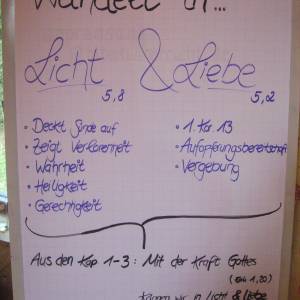 Wandelt in...
Licht & Liebe
5,8 5,2
• Deckt Sünde auf
• Zeigt Verlorenheit
• Wahrheit
• Heiligkeit
• Gerechtigkeit
• 1. Kor. 13
• Aufopferungsbereitschaft
• Vergebung
Aus den Kap 1-3: Mit der Kraft Gottes
1,20)
können wir in Licht & Liebe